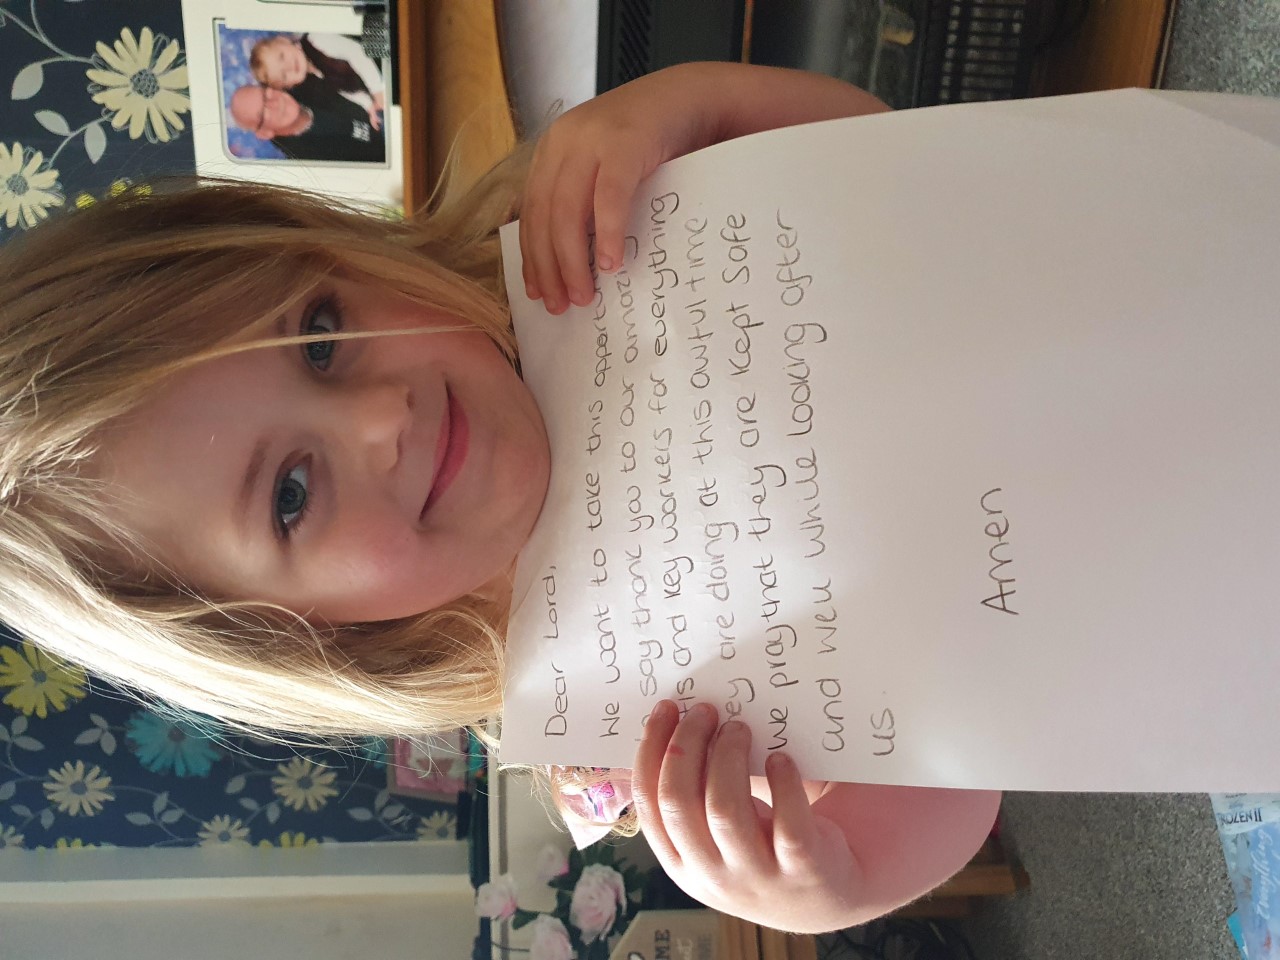 Dear Lord,
We want to take this opportunity
say thank you to our amazing
and key workers for everything
are doing at this awful time.
We pray that they are kept safe
and well while looking after
us.
Amen